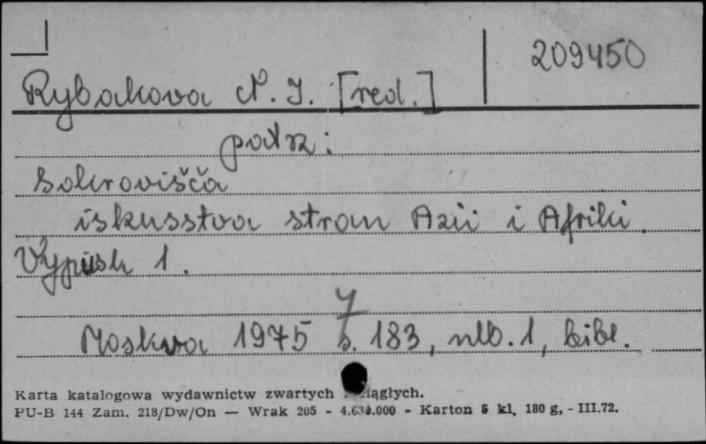 209450
Rybakova N. I. [red.]
patrz:
Sokrovišča
iskusstva stran Azii i Afriki.
Vypusk 1.
Moskva 1975 s. 183, nlb. 1, bibl.
Karta katalogowa wydawnictw zwartych i ciągłych.
PU-B 144 Zam. 218/Dw/On — Wrak 205 - 000 - Karton 5 kl, 180 g, - III.72.